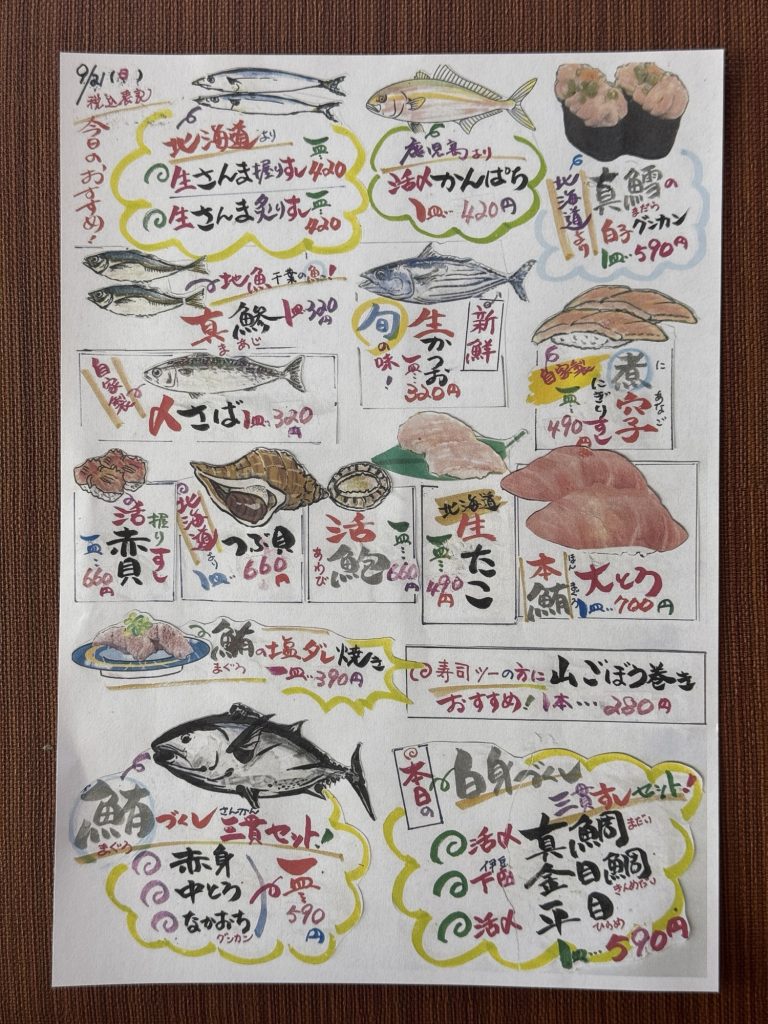 9/21(日)
税込表記
今日のおすすめ!
北海道より
生さんま握りすし 一皿…420
生さんま炙りすし 一皿…420
鹿児島より
活〆かんぱち
1皿…420円
北海道より
真鱈の
まだら
白子グンカン
1皿…590円
地魚 千葉の魚っ!
真鯵 1皿320円
まあじ
旬の味!
生かつお
一皿…320円
新鮮
自家製
煮穴子
に あなご
にぎりすし
一皿…490円
自家製
〆さば 1皿…320円
活赤貝
握りすし
一皿…660円
北海道より
つぶ貝
1皿…660円
活鮑
あわび
一皿…660円
北海道
生たこ
一皿…490円
本鮪
ほんまぐろ
大とろ
1皿…700円
鮪の塩ダレ焼き
まぐろ
一皿…390円
寿司ツーの方に 山ごぼう巻き
おすすめ! 1本…280円
鮪づくし 三貫セット!
まぐろ さんかん
赤身
中とろ
なかおち
グンカン
一皿…590円
本日の
白身づくし
三貫すしセット!
活〆 真鯛 まだい
伊豆下田 金目鯛 きんめだい
活〆 平目 ひらめ
1皿…590円